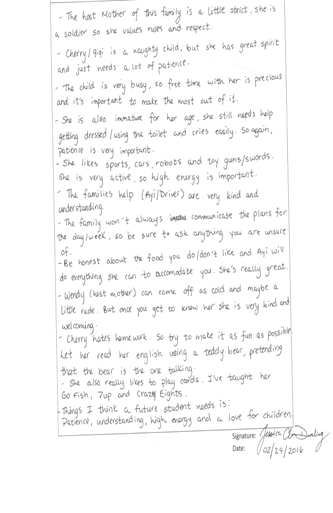 - The host Mother of this family is a little strict, she is
a soldier so she values rules and respect.
- Cherry/qiqi is a naughty child, but she has great spirit
and just needs a lot of patience.
- The child is very busy, so free time with her is precious
and it's important to make the most out of it.
- She is also immature for her age, she still needs help
getting dressed/using the toilet and cries easily. So again,
patience is very important.
- She likes sports, cars, robots and toy guns/swords.
She is very active, so high energy is important.
- The families help (Ayi/Driver) are very kind and
understanding.
- The family won't always communicate the plans for
the day/week, so be sure to ask anything you are unsure
of.
- Be honest about the food you do/don't like and Ayi will
do everything she can to accomodate you. She's really great.
- Wendy (host mother) can come off as cold and maybe a
little rude. But once you get to know her she is very kind and
welcoming.
- Cherry hates homework. So try to make it as fun as possible
Let her read her english using a teddy bear, pretending
that the bear is the one talking.
- She also really likes to play cards. I've taught her
Go Fish, 7up and Crazy Eights.
- Things I think a future student needs is:
Patience, understanding, high energy and a love for children
Signature: Jessica
Date: 02/29/2016